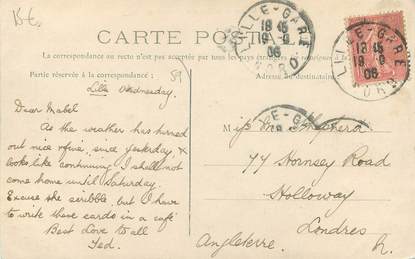 CARTE POS
La correspondance au recto n'est pas acceptée par tous les pays étrangers
Partie réservée à la correspondance
Adresse du destinataire
LILLE-GARE
18 45
19 -9
06
NORD
LILLE-GARE
18 45
19 -9
06
NORD
LE-GA
Lille Wednesday.
Dear Mabel
As the weather has turned
out nice since yesterday, &
looks like continuing I shall not
come home until Saturday.
Excuse the scribble, but I have
to write these cards in a café
Best Love to all
Ted.
M
Miss Shephera
77 Hornsey Road
Holloway
Londres
Angleterre.